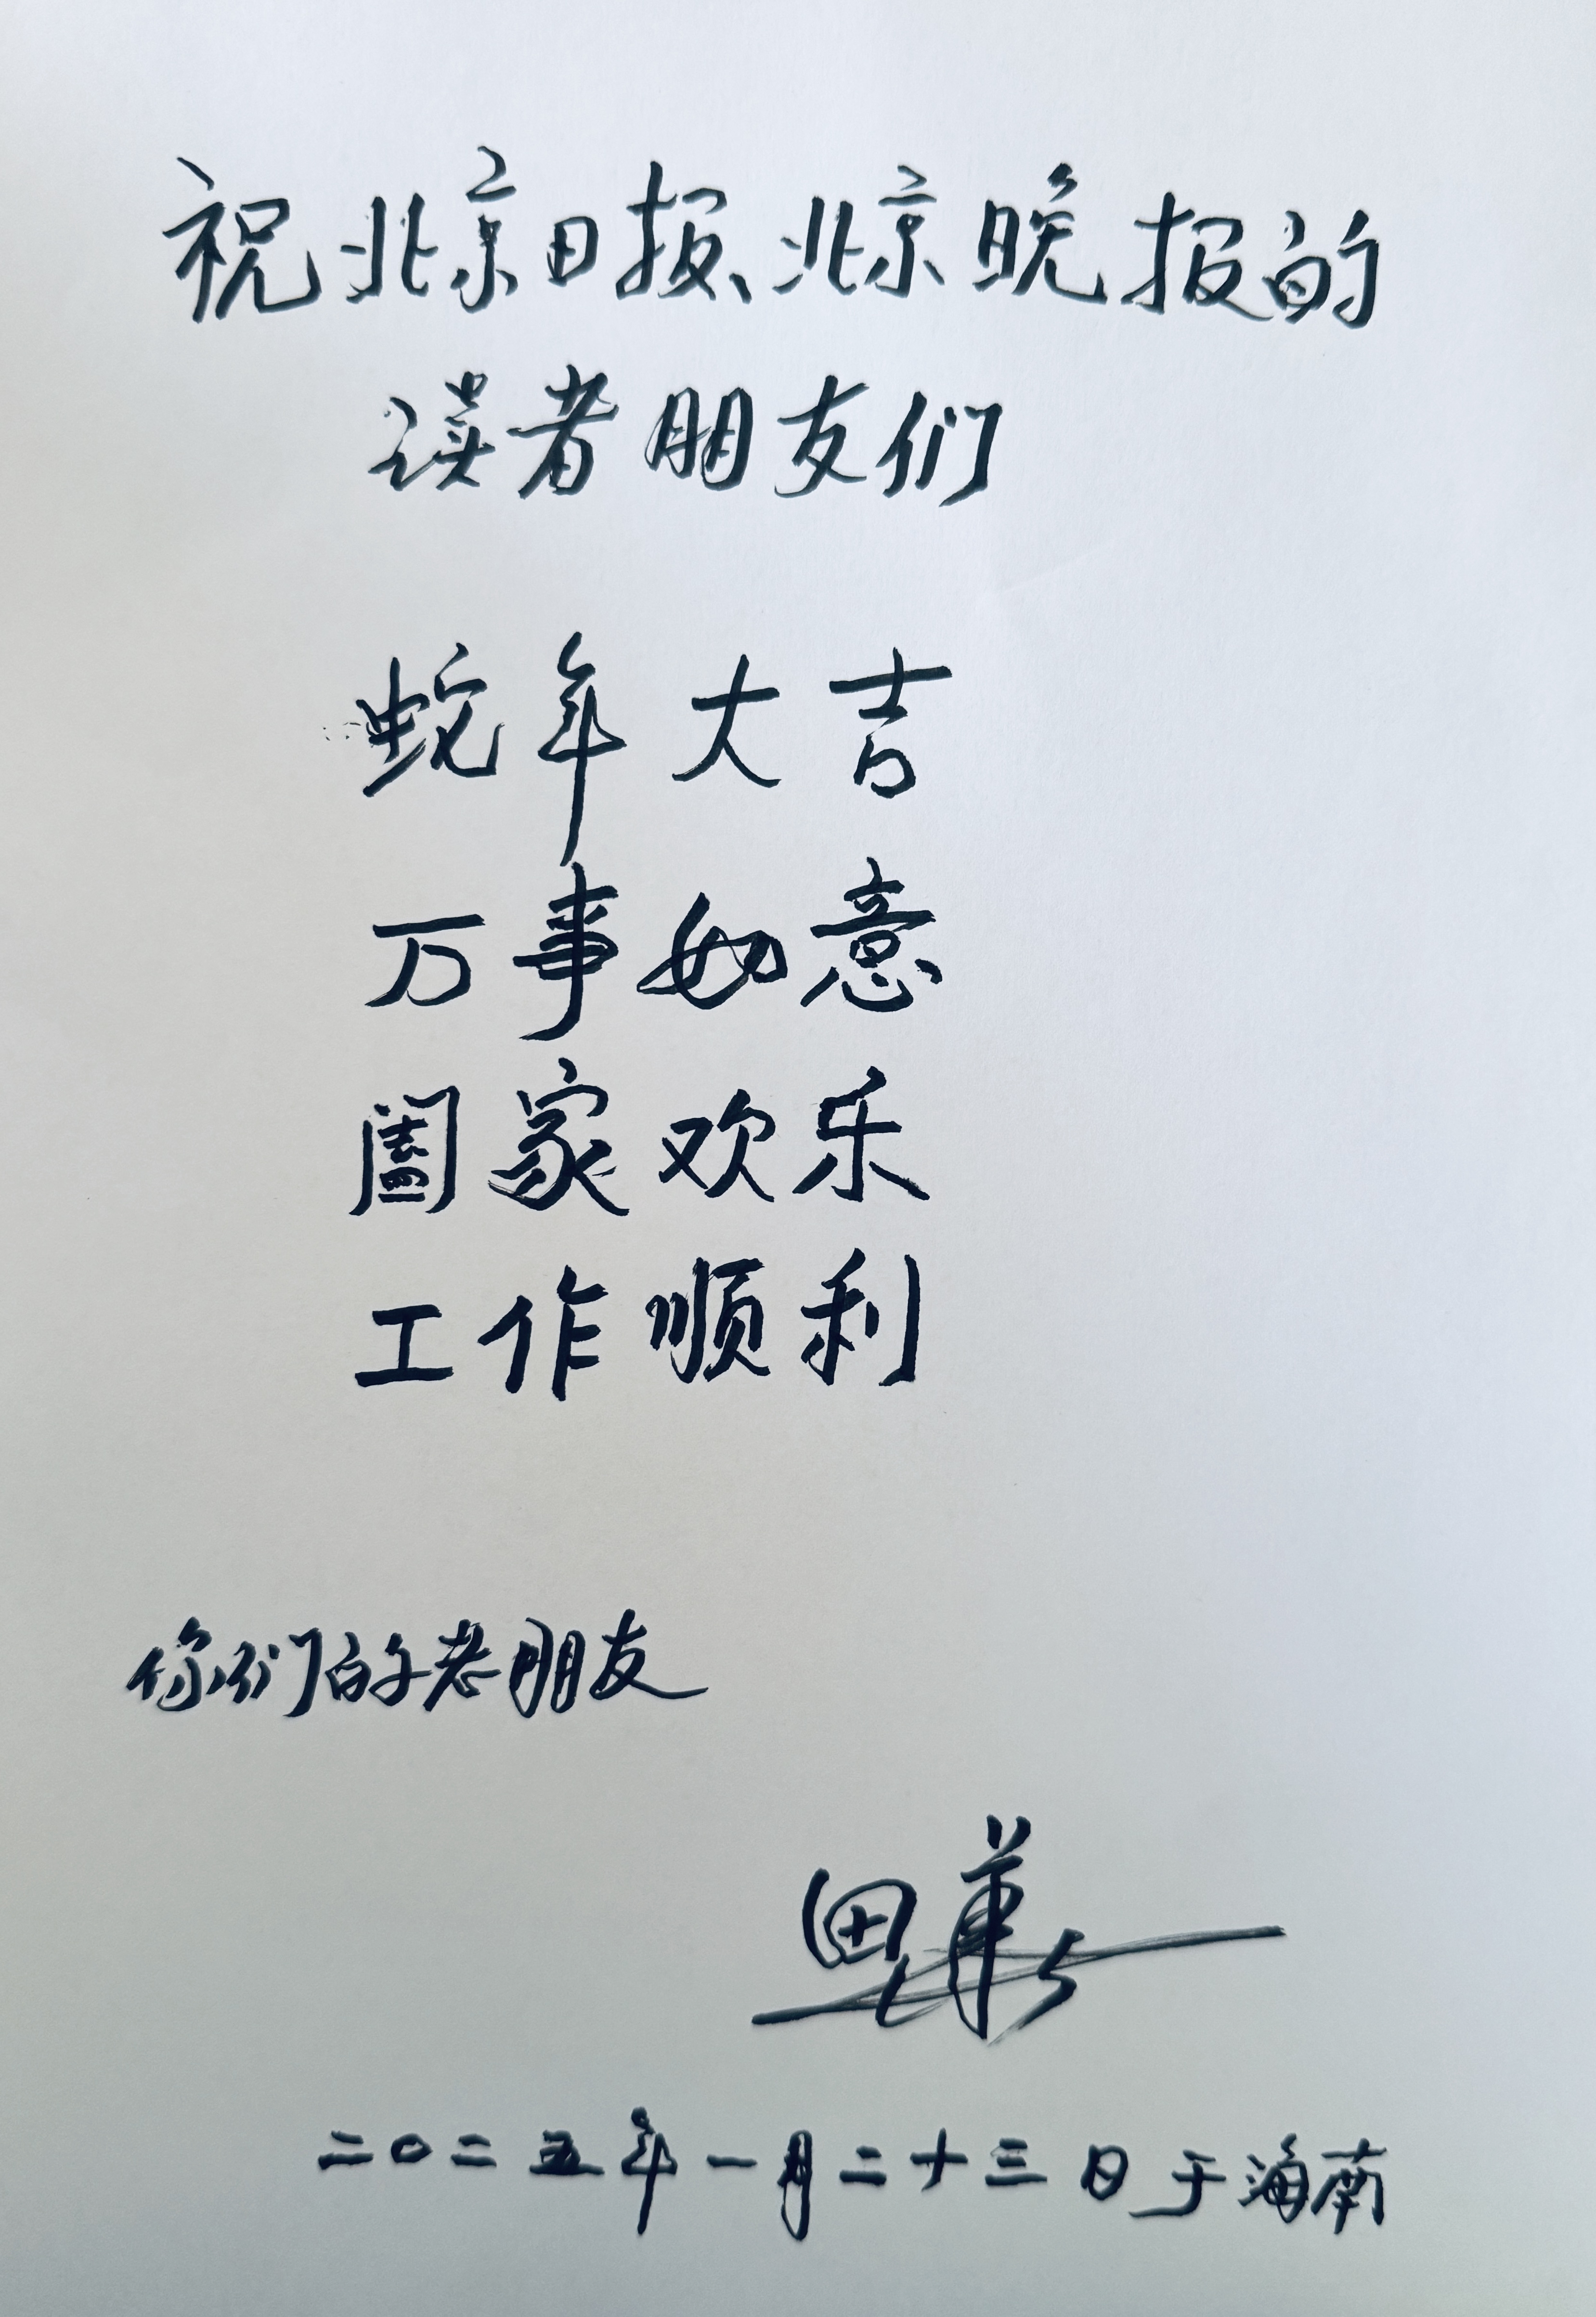 祝北京日报、北京晚报的
读者朋友们
蛇年大吉
万事如意
阖家欢乐
工作顺利
你们的老朋友
田華
二〇二五年一月二十三日于海南